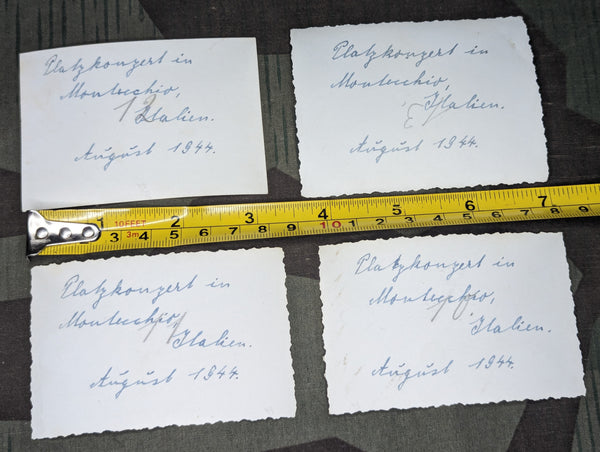 Platzkonzert in
Montecchio,
12
Italien.
August 1944.
Platzkonzert in
Montecchio,
Italien.
August 1944.
1 2 3 4 5 6 7
10FEET
3m 4 5 6 7 8 9 10 1 2 3 4 5 6 7 8 9
Platzkonzert in
Montecchio,
11
Italien.
August 1944.
Platzkonzert in
Montecchio,
10
Italien.
August 1944.